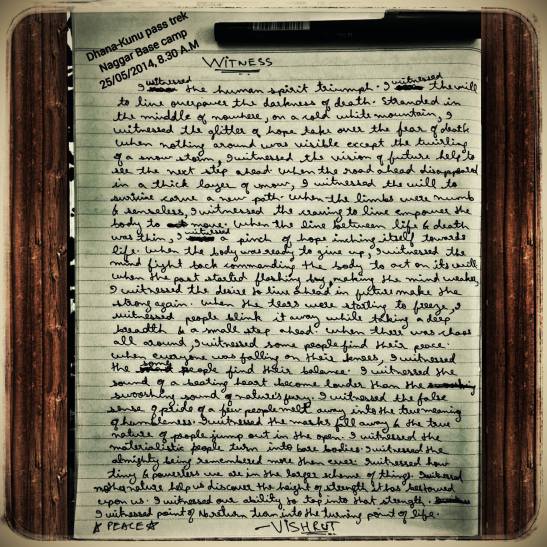 Dhana-Kunu pass trek
Naggar Base camp
25/05/2014, 8.30 A.M
WITNESS
I witnessed the human spirit triumph. I witnessed the will
to live overpower the darkness of death. Stranded in
the middle of nowhere, on a cold white mountain, I
witnessed the glitter of hope take over the fear of death
when nothing around was visible except the twirling
of a snow storm, I witnessed the vision of future help to
see the next step ahead when the road ahead disappeared
in a thick layer of snow, I witnessed the will to
survive carve a new path. When the limbs were numb
& senseless, I witnessed the craving to live empower the
body to move. When the line between life & death
was thin, I witnessed a pinch of hope inching itself towards
life. When the body was ready to give up, I witnessed the
mind fight back commanding the body to act on its will
when the past started flashing by, making the mind weaker,
I witnessed the desire to live ahead in future make the
strong again. When the tears were starting to freeze, I
witnessed people blink it away while taking a deep
breadth & a small step ahead. When there was chaos
all around, I witnessed some people find their peace.
When everyone was falling on their knees, I witnessed
the some people find their balance. I witnessed the
sound of a beating heart become louder than the
swooshing sound of nature's fury. I witnessed the false
sense of pride of a few people melt away into the true meaning
of humbleness. I witnessed the masks fall away & the true
nature of people jump out in the open. I witnessed the
materialistic people turn into bare bodies. I witnessed the
almighty being remembered more than ever. I witnessed how
tiny & powerless we are in the larger scheme of things. I witnessed
nature help us discover the height of strength it has bestowed
upon us. I witnessed our ability to tap into that strength.
I witnessed point of No return turn into the turning point of life.
☆ PEACE ☆ - VISHRUT